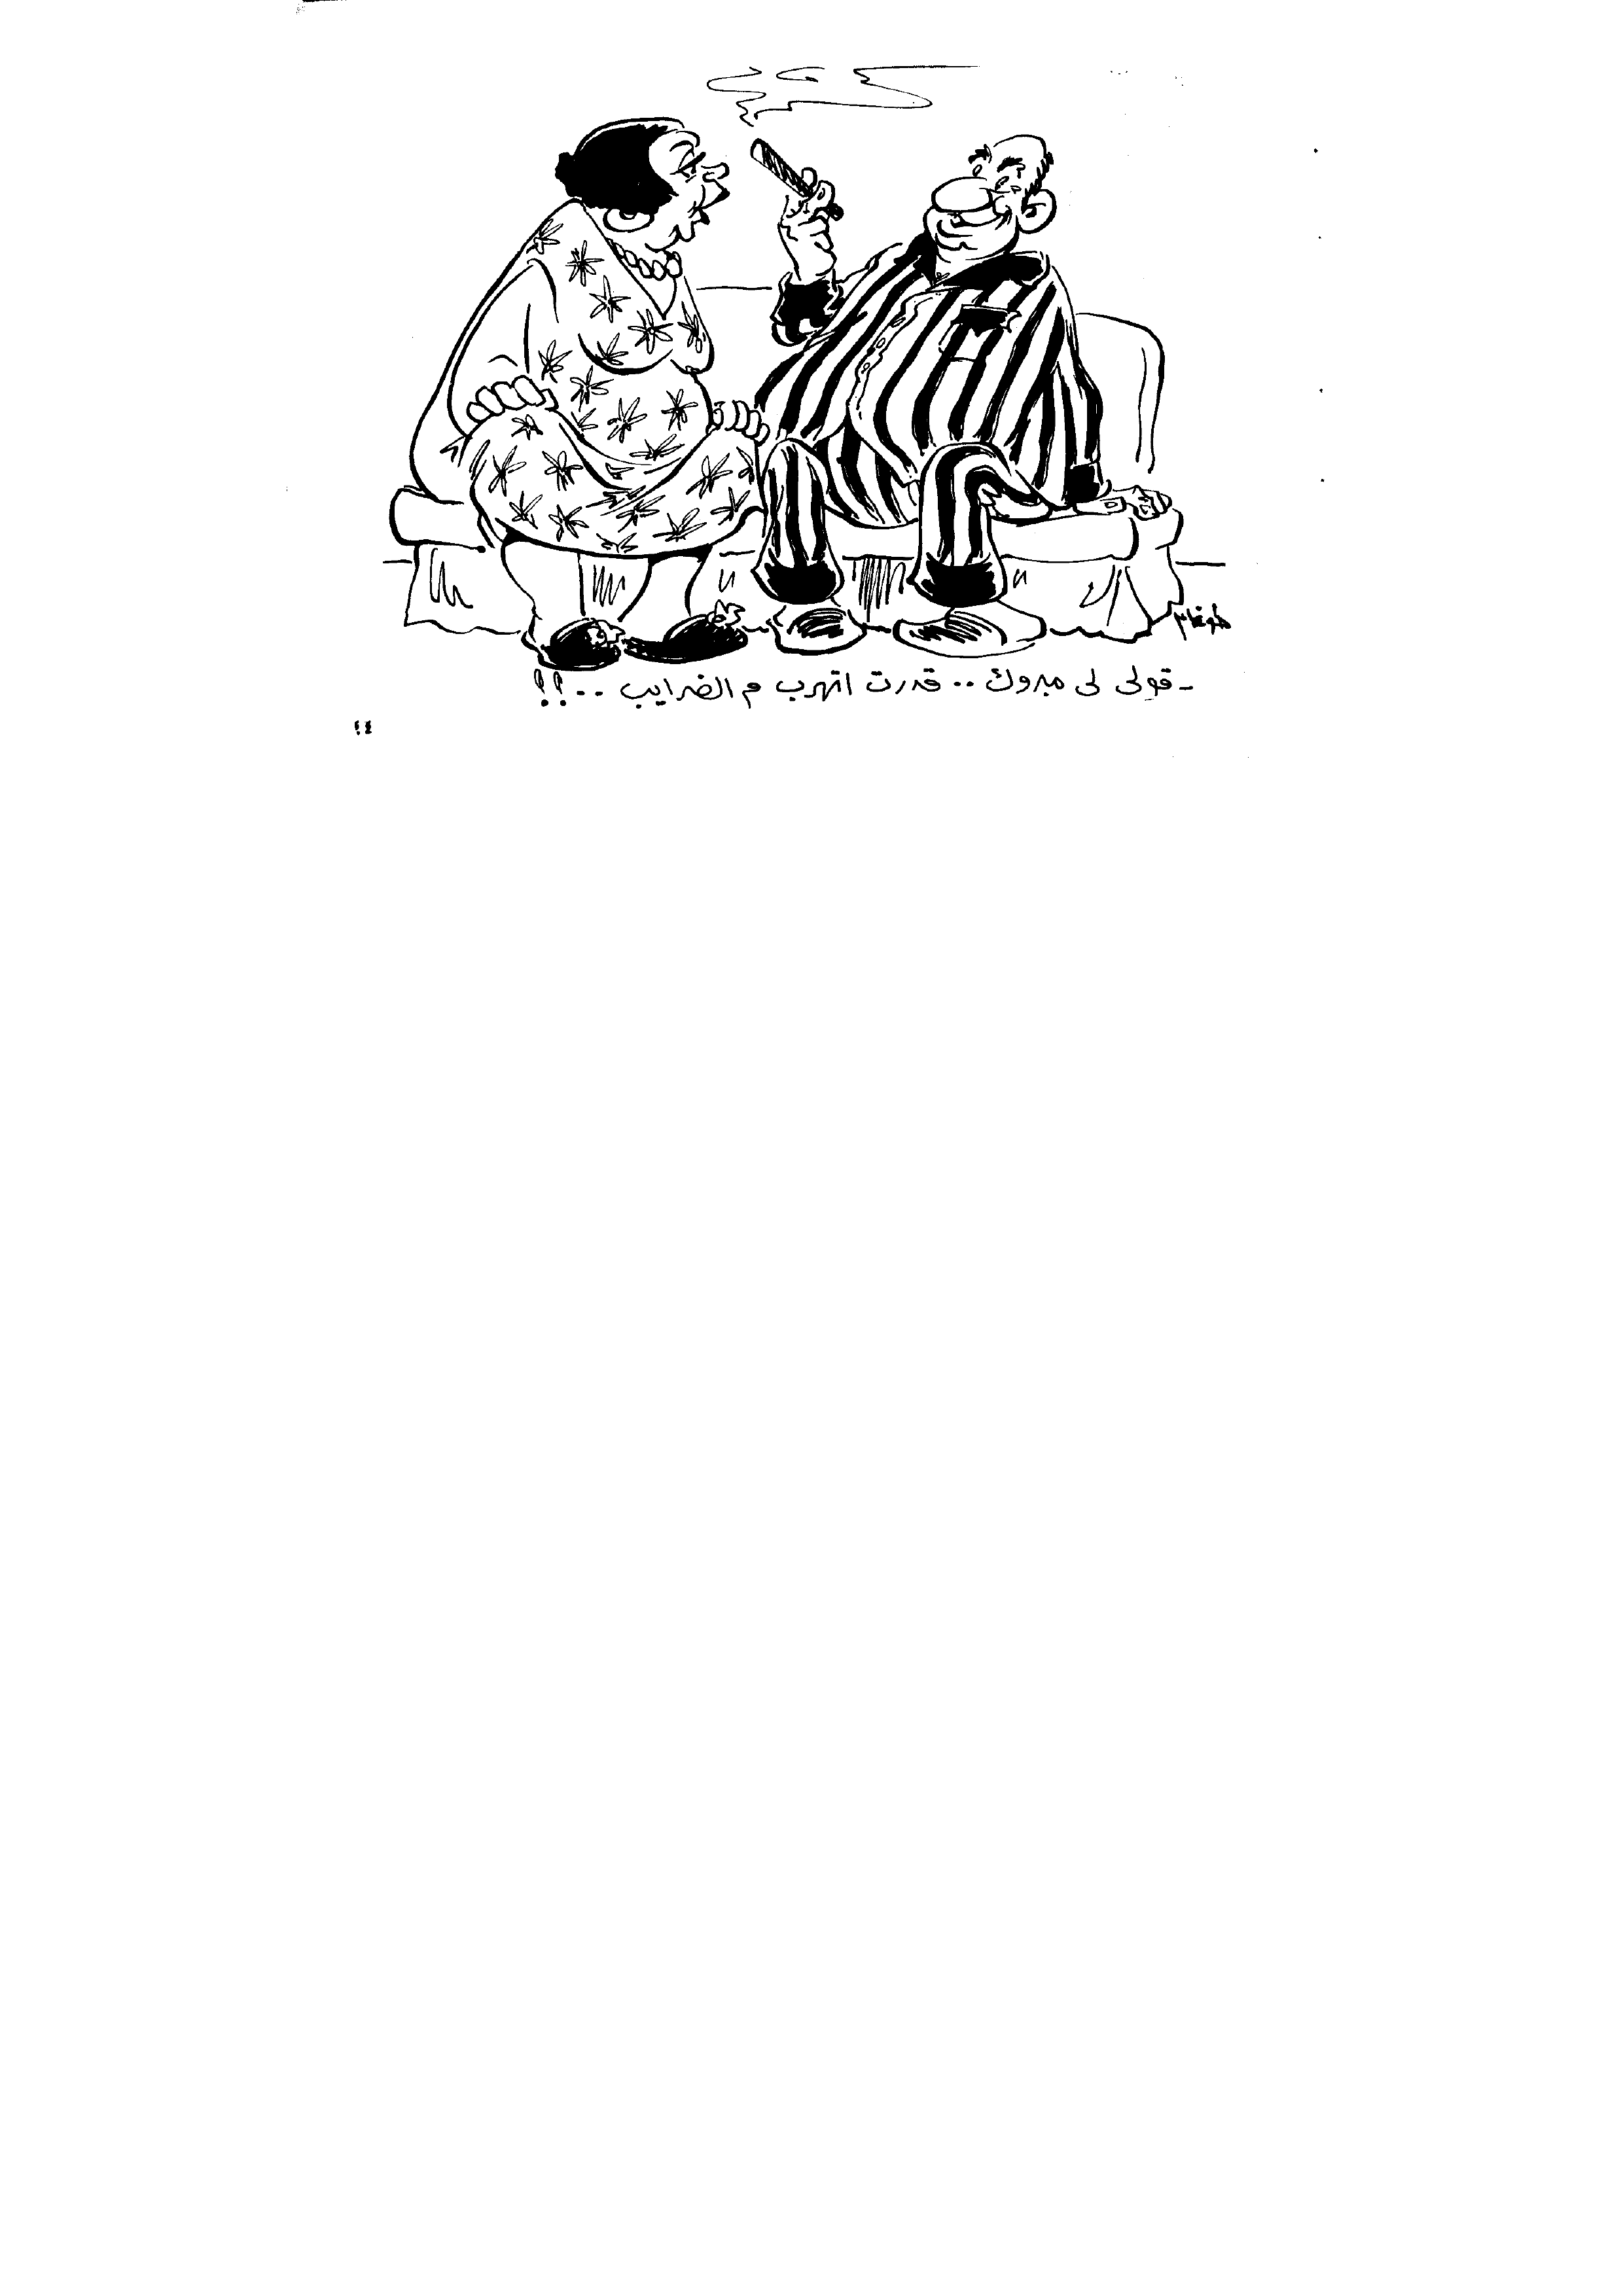 - قولى لى مبروك .. قدرت اتهرب م الضرايب ..!!